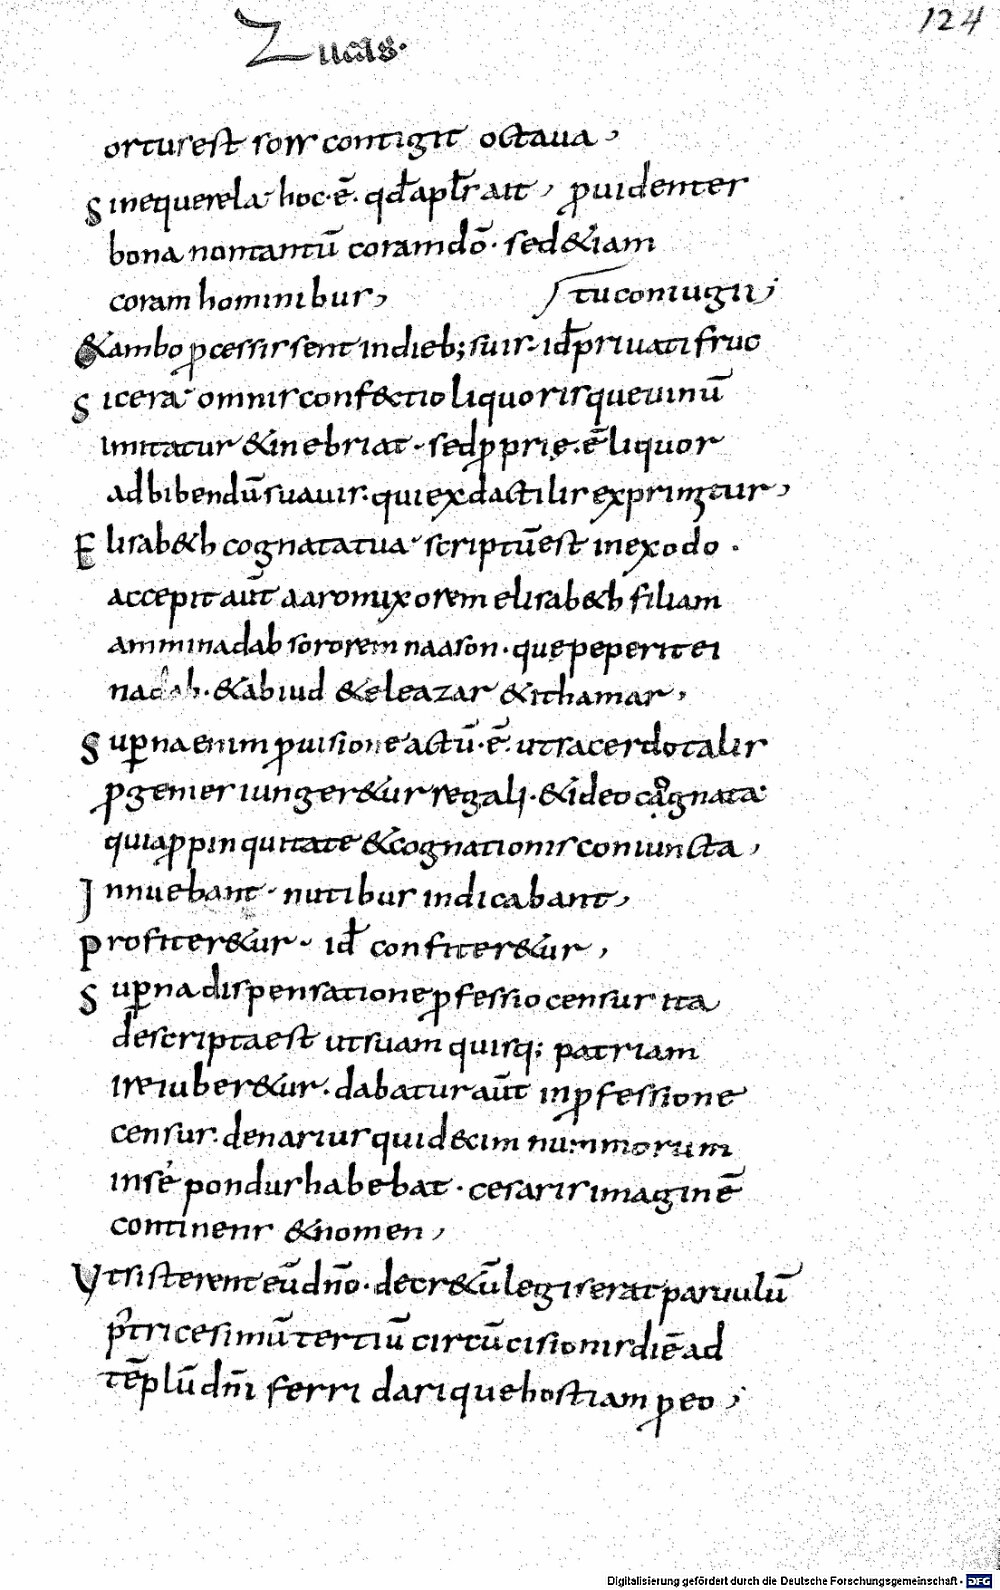 124
Lucas.
ortus est sors contigit octaua,
Sine querela hoc·ē· qđ apłs ait, ꝓuidenter
bona non tantū coram dō· sed &iam
coram hominibus,
stu coniugii,
& ambo ꝓcessissent in dieb; suis· iđ priuati fruc
Sicera· omnis conf&ctio liquoris que uinū
imitatur & inebriat· sed ꝓprię·ē liquor
ad bibendū suauis· qui ex dactilis exprimitur,
Elisab&h cognata tua· scriptū est in exodo·
accepit aūt aaron uxorem elisab&h filiam
amminadab sororem naason· quę peperit ei
nadab· & abiud & eleazar & ithamar,
Suꝑna enim ꝓuisione actū·ē· ut sacerdotalis
ꝓgenies iunger&ur regali· & ideo cognata
quia ꝓpinquitate & cognationis coniuncta,
Innuebant· nutibus indicabant,
Profiter&ur· iđ confiter&ur,
Suꝑna dispensatione ꝓfessio census ita
descripta est ut suam quisq; patriam
ire iuber&ur· dabatur aūt in ꝓfessione
census· denarius qui decim nummorum
in sé pondus habebat· cesaris imaginē
continens & nomen,
Ut sisterent eū dn̄o· decr&ū legis erat paruulū
p̄ tricesimū tertiū circūcisionis diē ad
tēplū dn̄i ferri darique hostiam ꝓ eo,
Digitalisierung gefördert durch die Deutsche Forschungsgemeinschaft - DFG